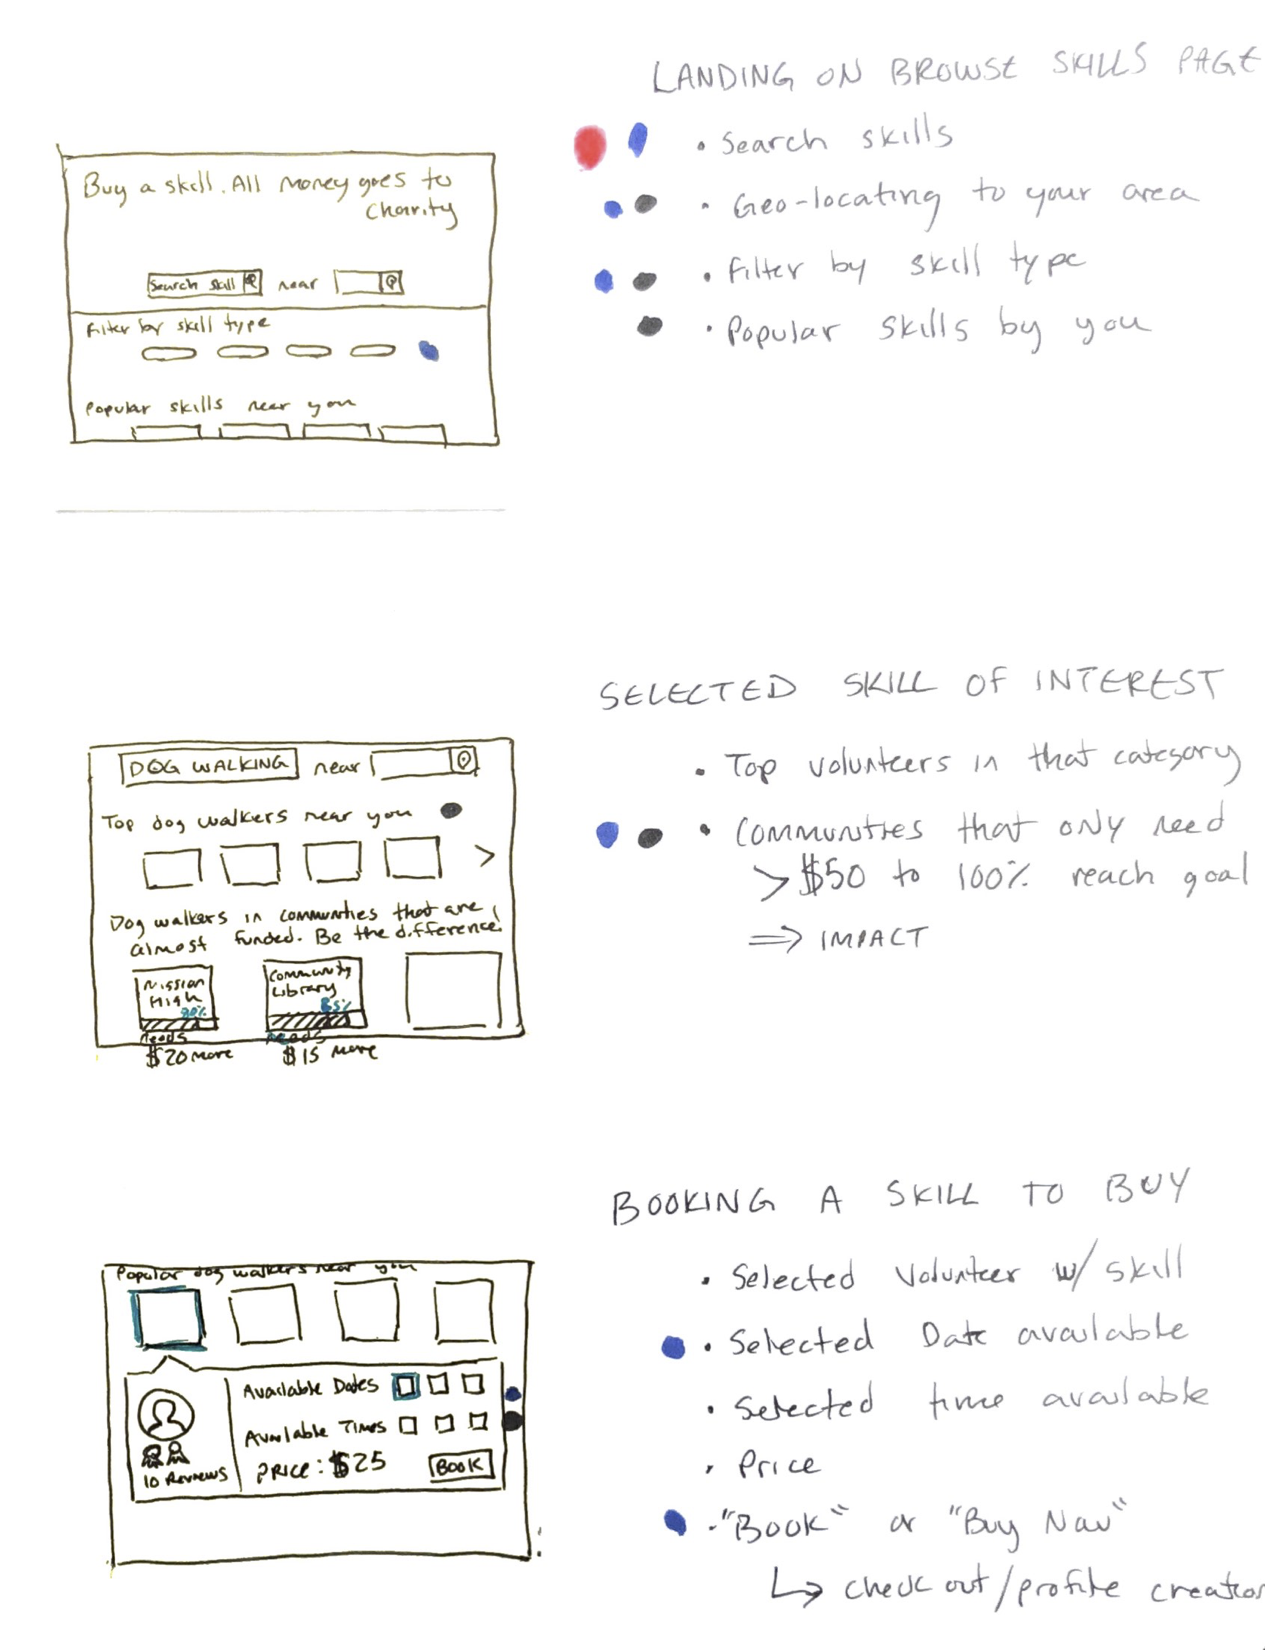 LANDING ON BROWSE SKILLS PAGE
• Search skills
• Geo-locating to your area
• Filter by skill type
• Popular skills by you
Buy a skill. All money goes to
charity
Search skill near
Filter by skill type
Popular skills near you
SELECTED SKILL OF INTEREST
• Top volunteers in that category
• Communities that only need
>$50 to 100% reach goal
=> IMPACT
DOG WALKING near
Top dog walkers near you
>
Dog walkers in communities that are
almost funded. Be the difference.
Mission
High
80%
needs
$20 more
Community
Library
85%
needs
$15 more
BOOKING A SKILL TO BUY
• Selected Volunteer w/ skill
• Selected Date available
• Selected time available
• Price
• "Book" or "Buy Now"
↳ check out/profile creation
Popular dog walkers near you
Available Dates
Available Times
PRICE: $25 BOOK
10 Reviews